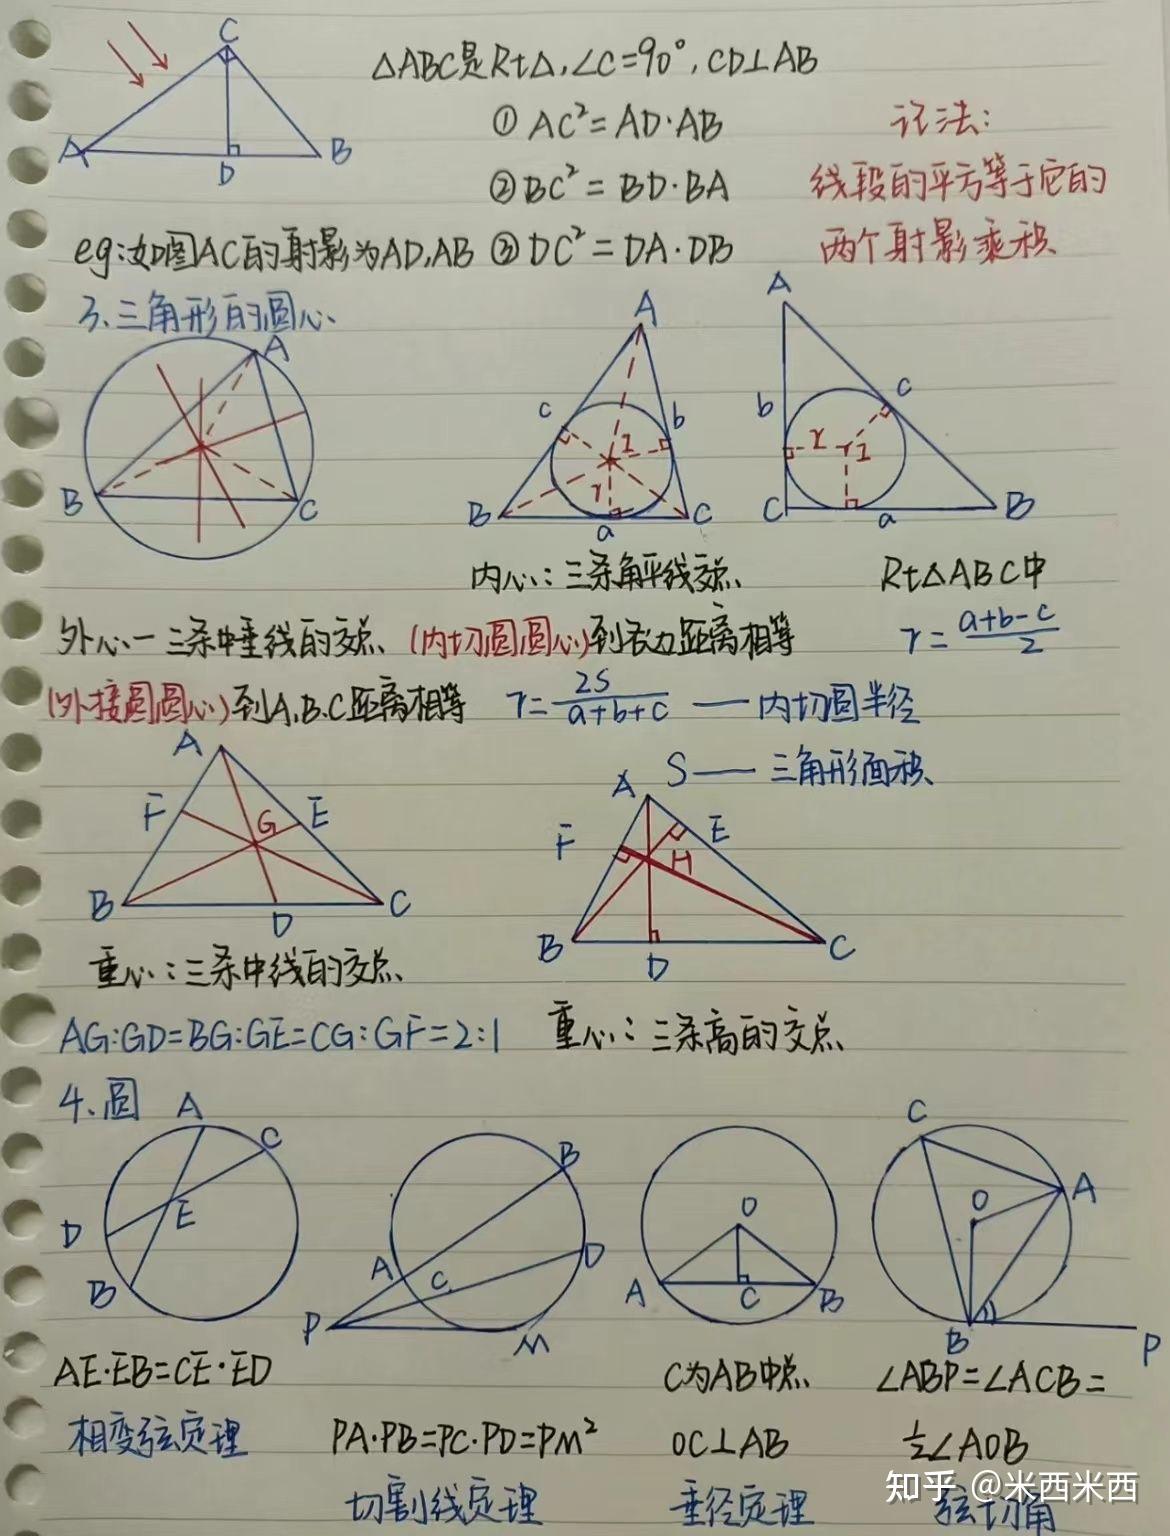 △ABC是Rt△,∠C=90°,CD⊥AB
① AC²=AD·AB
② BC²=BD·BA
eg:如图AC的射影为AD,AB ③ DC²=DA·DB
记法:
线段的平方等于它的
两个射影乘积
C
A
D
B
3.三角形的圆心
A
B
C
A
c
b
I
r
B
a
C
A
b
c
r
I
C
a
B
内心:三条角平线交点
Rt△ABC中
外心一三条中垂线的交点 (内切圆圆心)到各边距离相等
r=(a+b-c)/2
(外接圆圆心)到A.B.C距离相等
r=2S/(a+b+c) —— 内切圆半径
S —— 三角形面积
A
F
G
E
B
D
C
A
F
E
H
B
D
C
重心:三条中线的交点
AG:GD=BG:GE=CG:GF=2:1
重心:三条高的交点
4.圆
A
C
D
E
B
B
A
C
D
P
M
O
A
C
B
C
O
A
B
1
P
AE·EB=CE·ED
相变弦定理
PA·PB=PC·PD=PM²
切割线定理
C为AB中点
OC⊥AB
垂径定理
∠ABP=∠ACB=
½∠AOB
弦切角
知乎 @米西米西